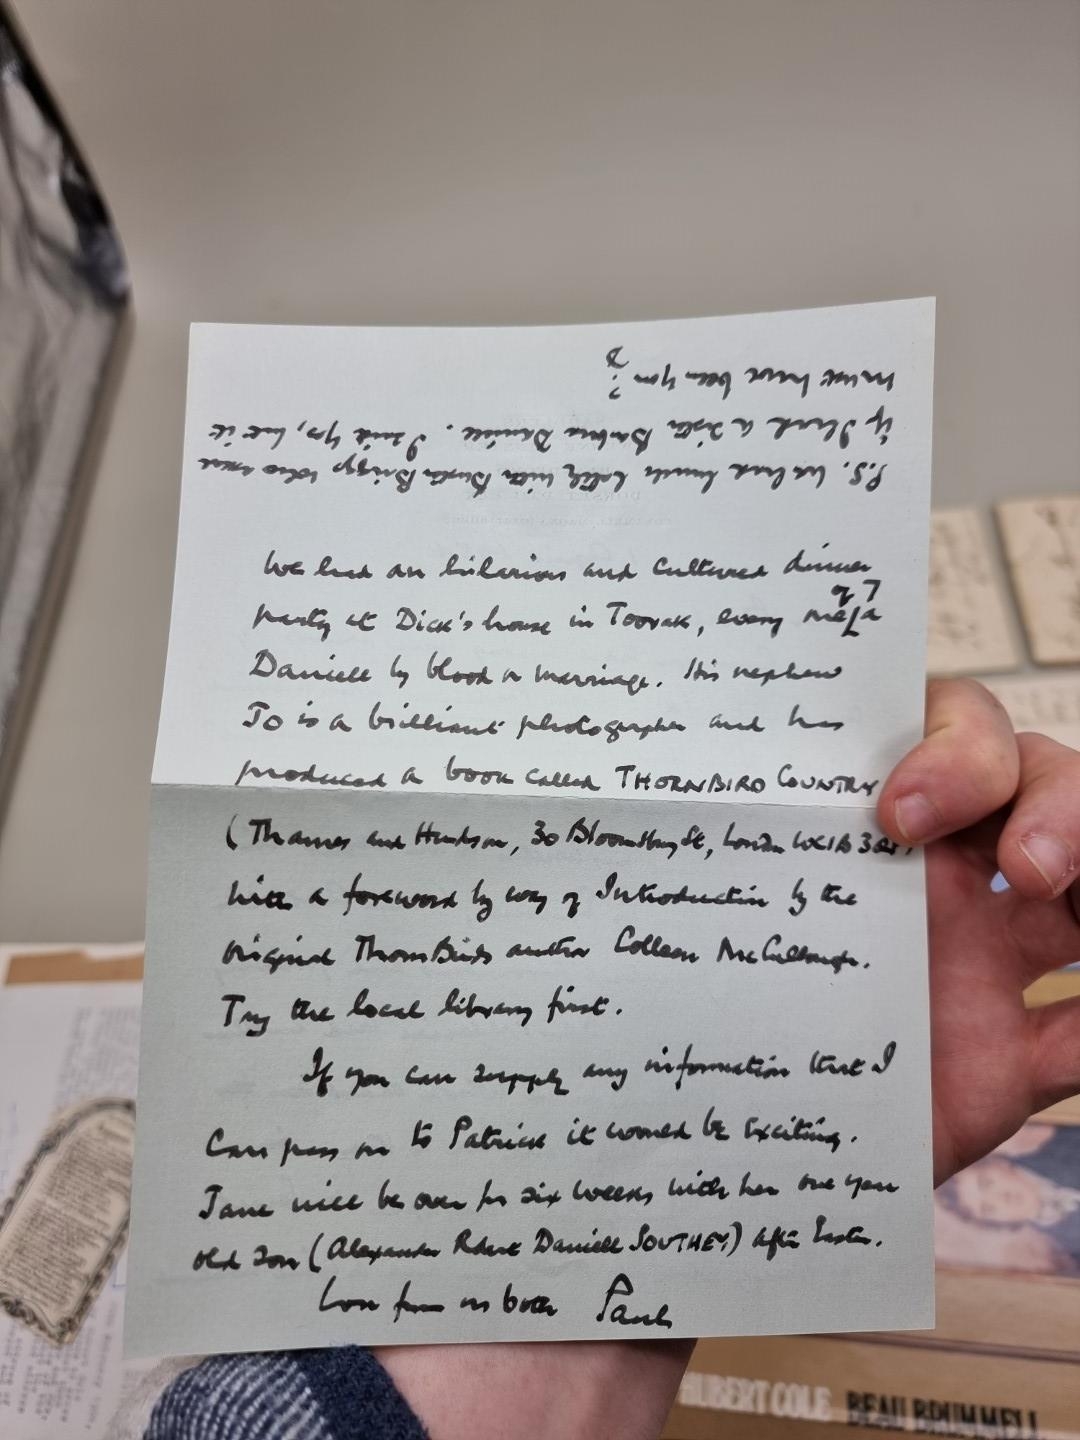 We had an hilarious and cultured dinner
party at Dick's house in Toorak, every one a
Daniell by blood or marriage. His nephew
Jo is a brilliant photographer and has
produced a book called THORNBIRD COUNTRY
(Thames and Hudson, 30 Bloomsbury St, London WC1B 3
with a foreword by way of Introduction by the
original ThornBirds author Colleen McCullough.
Try the local library first.
If you can supply any information that I
can pass on to Patrick it would be exciting.
Jane will be over for six weeks with her one year
old son (Alexander Robert Daniell SOUTHEY) after Easter.
Love from us both Paul
P.S. We had lunch lately with Briggs who asked
if I had a sister Barbara Daniell. I said yes, but it
must have been you?
HUBERT COLE BEAU BRUMMELL